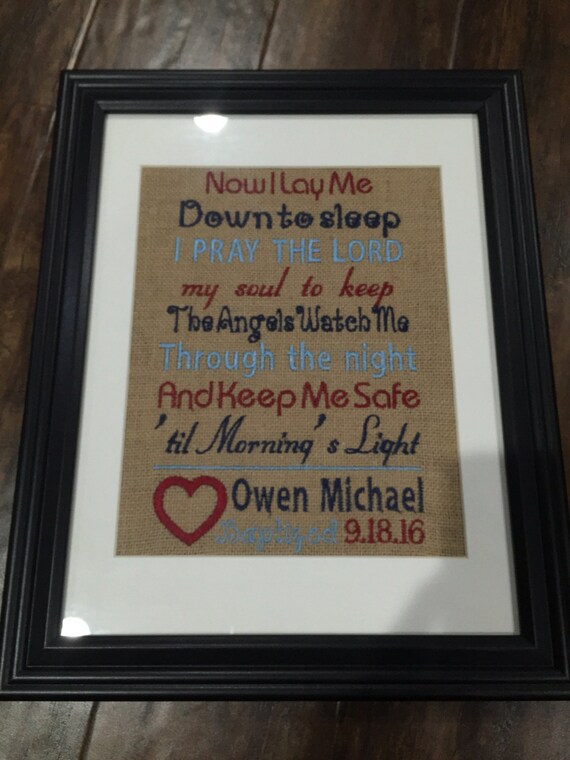 Now I Lay Me
Down to sleep
I PRAY THE LORD
my soul to keep
The Angels Watch Me
Through the night
And Keep Me Safe
'til Morning's Light
Owen Michael
Baptized 9.18.16